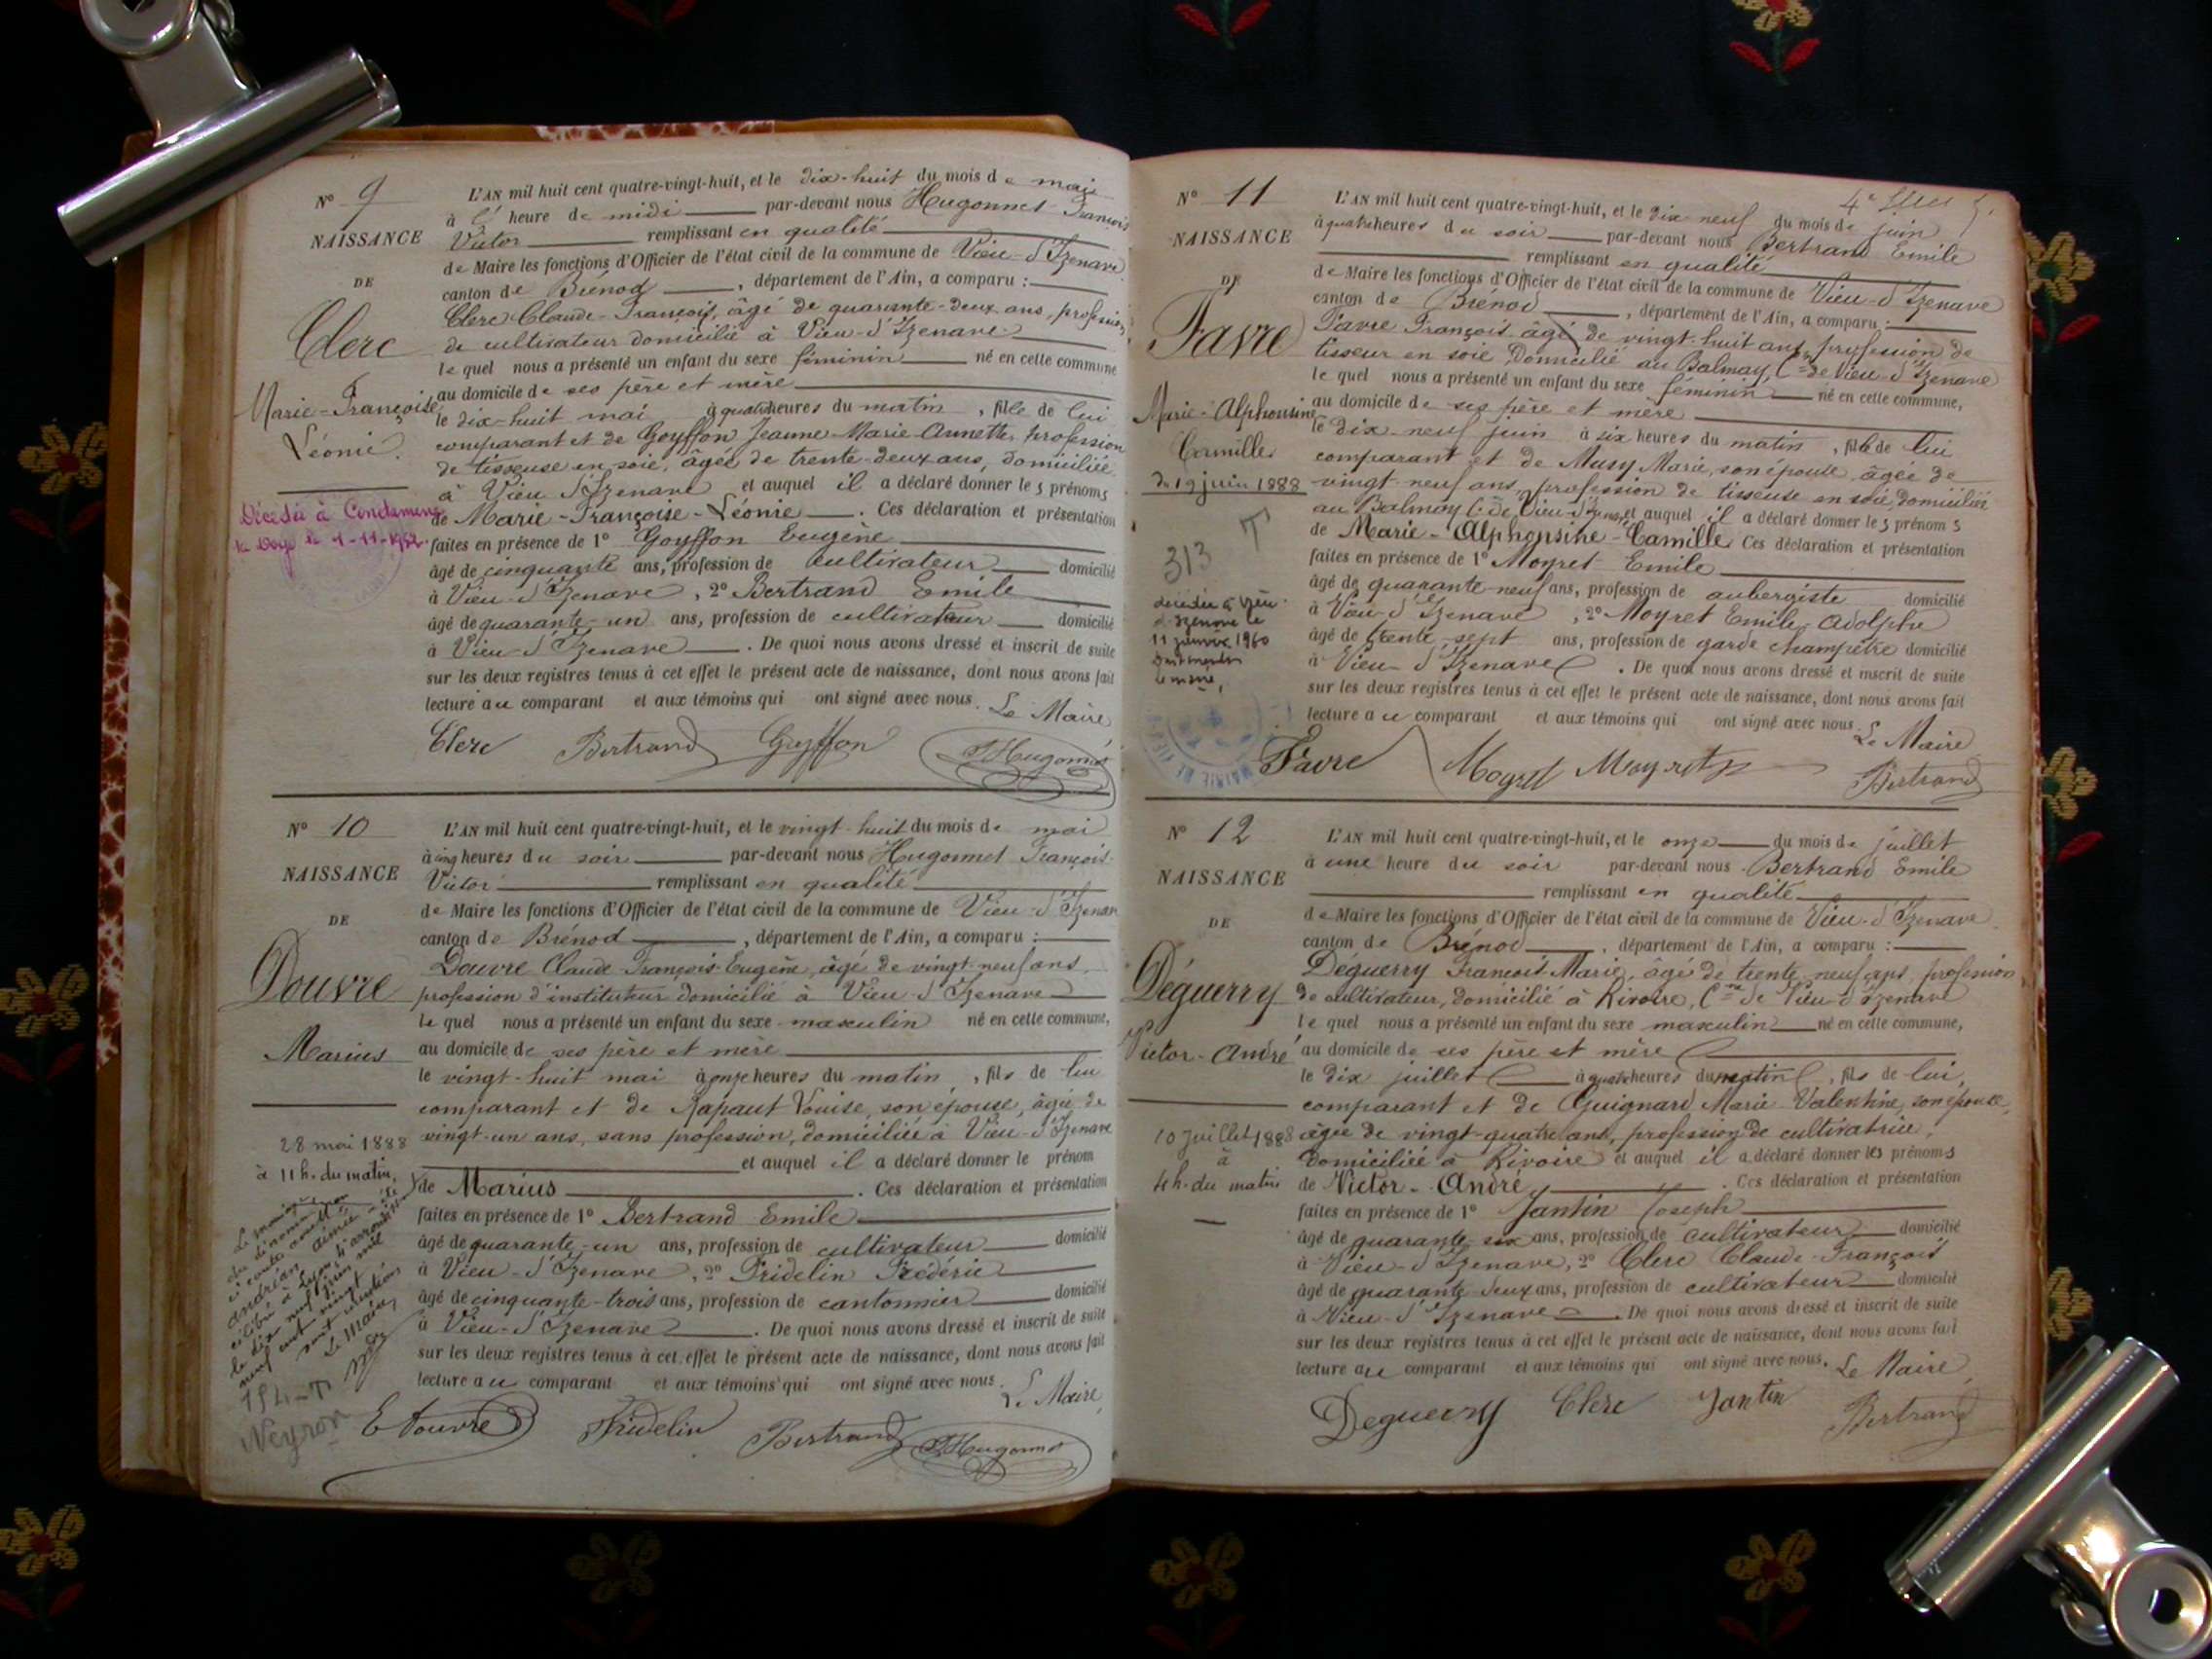 N° 9
NAISSANCE
DE
Clerc
Marie-Françoise
Léonie.
Décédée à Condamine
le 1-11-1952.
L'AN mil huit cent quatre-vingt-huit, et le dix-huit du mois de mai
à l' heure de midi par-devant nous Hugonnet François
Victor remplissant en qualité
de Maire les fonctions d'Officier de l'état civil de la commune de Vieu-d'Izenave
canton de Brénod, département de l'Ain, a comparu :
Clerc Claude-François, âgé de quarante-deux ans, profession
de cultivateur domicilié à Vieu-d'Izenave
le quel nous a présenté un enfant du sexe féminin né en cette commune
au domicile de ses père et mère
le dix-huit mai à quatre heures du matin, fille de lui
comparant et de Goyffon Jeanne-Marie-Annette, profession
de tisseuse en soie, âgée de trente-deux ans, domiciliée
à Vieu d'Izenave et auquel il a déclaré donner les prénoms
de Marie-Françoise-Léonie. Ces déclaration et présentation
faites en présence de 1° Goyffon Eugène
âgé de cinquante ans, profession de cultivateur domicilié
à Vieu-d'Izenave, 2° Bertrand Emile
âgé de quarante-un ans, profession de cultivateur domicilié
à Vieu-d'Izenave. De quoi nous avons dressé et inscrit de suite
sur les deux registres tenus à cet effet le présent acte de naissance, dont nous avons fait
lecture au comparant et aux témoins qui ont signé avec nous. Le Maire
Clerc Bertrand Goyffon Hugonnet
N° 10
NAISSANCE
DE
Douvre
Marius
28 mai 1888
à 11 h. du matin,
Neyron
L'AN mil huit cent quatre-vingt-huit, et le vingt-huit du mois de mai
à cinq heures du soir par-devant nous Hugonnet François
Victor remplissant en qualité
de Maire les fonctions d'Officier de l'état civil de la commune de Vieu-d'Izenave
canton de Brénod, département de l'Ain, a comparu :
Douvre Claude François-Eugène, âgé de vingt-neuf ans,
profession d'instituteur domicilié à Vieu-d'Izenave
le quel nous a présenté un enfant du sexe masculin né en cette commune,
au domicile de ses père et mère
le vingt-huit mai à onze heures du matin, fils de lui
comparant et de Louise, son épouse, âgée de
vingt-un ans, sans profession, domiciliée à Vieu-d'Izenave
et auquel il a déclaré donner le prénom
de Marius. Ces déclaration et présentation
faites en présence de 1° Bertrand Emile
âgé de quarante-un ans, profession de cultivateur domicilié
à Vieu-d'Izenave, 2° Fridelin Frédéric
âgé de cinquante-trois ans, profession de cantonnier domicilié
à Vieu-d'Izenave. De quoi nous avons dressé et inscrit de suite
sur les deux registres tenus à cet effet le présent acte de naissance, dont nous avons fait
lecture au comparant et aux témoins qui ont signé avec nous. Le Maire,
E Douvre Fridelin Bertrand Hugonnet
N° 11
NAISSANCE
DE
Favre
Marie-Alphonsine
Camille
du 19 juin 1888
313 T
décédée à Vieu
d'Izenave le
11 janvier 1960
L'AN mil huit cent quatre-vingt-huit, et le dix-neuf du mois de juin
à quatre heures du soir par-devant nous Bertrand Emile
remplissant en qualité
de Maire les fonctions d'Officier de l'état civil de la commune de Vieu-d'Izenave
canton de Brénod, département de l'Ain, a comparu :
Favre François âgé de vingt-huit ans, profession de
tisseur en soie domicilié au Balmay, Cne de Vieu-d'Izenave
le quel nous a présenté un enfant du sexe féminin né en cette commune,
au domicile de ses père et mère
le dix-neuf juin à six heures du matin, fille de lui
comparant et de Musy Marie, son épouse âgée de
vingt-neuf ans, profession de tisseuse en soie, domiciliée
au Balmay Cne de Vieu-d'Izenave, et auquel il a déclaré donner les prénoms
de Marie-Alphonsine-Camille. Ces déclaration et présentation
faites en présence de 1° Moyret Emile
âgé de quarante-neuf ans, profession de aubergiste domicilié
à Vieu-d'Izenave, 2° Moyret Emile-Adolphe
âgé de trente-sept ans, profession de garde champêtre domicilié
à Vieu-d'Izenave. De quoi nous avons dressé et inscrit de suite
sur les deux registres tenus à cet effet le présent acte de naissance, dont nous avons fait
lecture au comparant et aux témoins qui ont signé avec nous. Le Maire
Favre Moyret Moyret Bertrand
N° 12
NAISSANCE
DE
Déguerry
Victor-André
10 juillet 1888
à
4 h. du matin
L'AN mil huit cent quatre-vingt-huit, et le onze du mois de juillet
à une heure du soir par-devant nous Bertrand Emile
remplissant en qualité
de Maire les fonctions d'Officier de l'état civil de la commune de Vieu-d'Izenave
canton de Brénod, département de l'Ain, a comparu :
Déguerry François-Marie, âgé de trente-neuf ans, profession
de cultivateur, domicilié à Rivoire, Cne de Vieu-d'Izenave
le quel nous a présenté un enfant du sexe masculin né en cette commune,
au domicile de ses père et mère
le dix juillet à quatre heures du matin, fils de lui,
comparant et de Guignard Marie-Valentine, son épouse,
âgée de vingt-quatre ans, profession de cultivatrice,
domiciliée à Rivoire et auquel il a déclaré donner les prénoms
de Victor-André. Ces déclaration et présentation
faites en présence de 1° Jantin Joseph
âgé de quarante-six ans, profession de cultivateur domicilié
à Vieu-d'Izenave, 2° Clerc Claude-François
âgé de quarante-deux ans, profession de cultivateur domicilié
à Vieu-d'Izenave. De quoi nous avons dressé et inscrit de suite
sur les deux registres tenus à cet effet le présent acte de naissance, dont nous avons fait
lecture au comparant et aux témoins qui ont signé avec nous. Le Maire,
Deguerry Clerc Jantin Bertrand